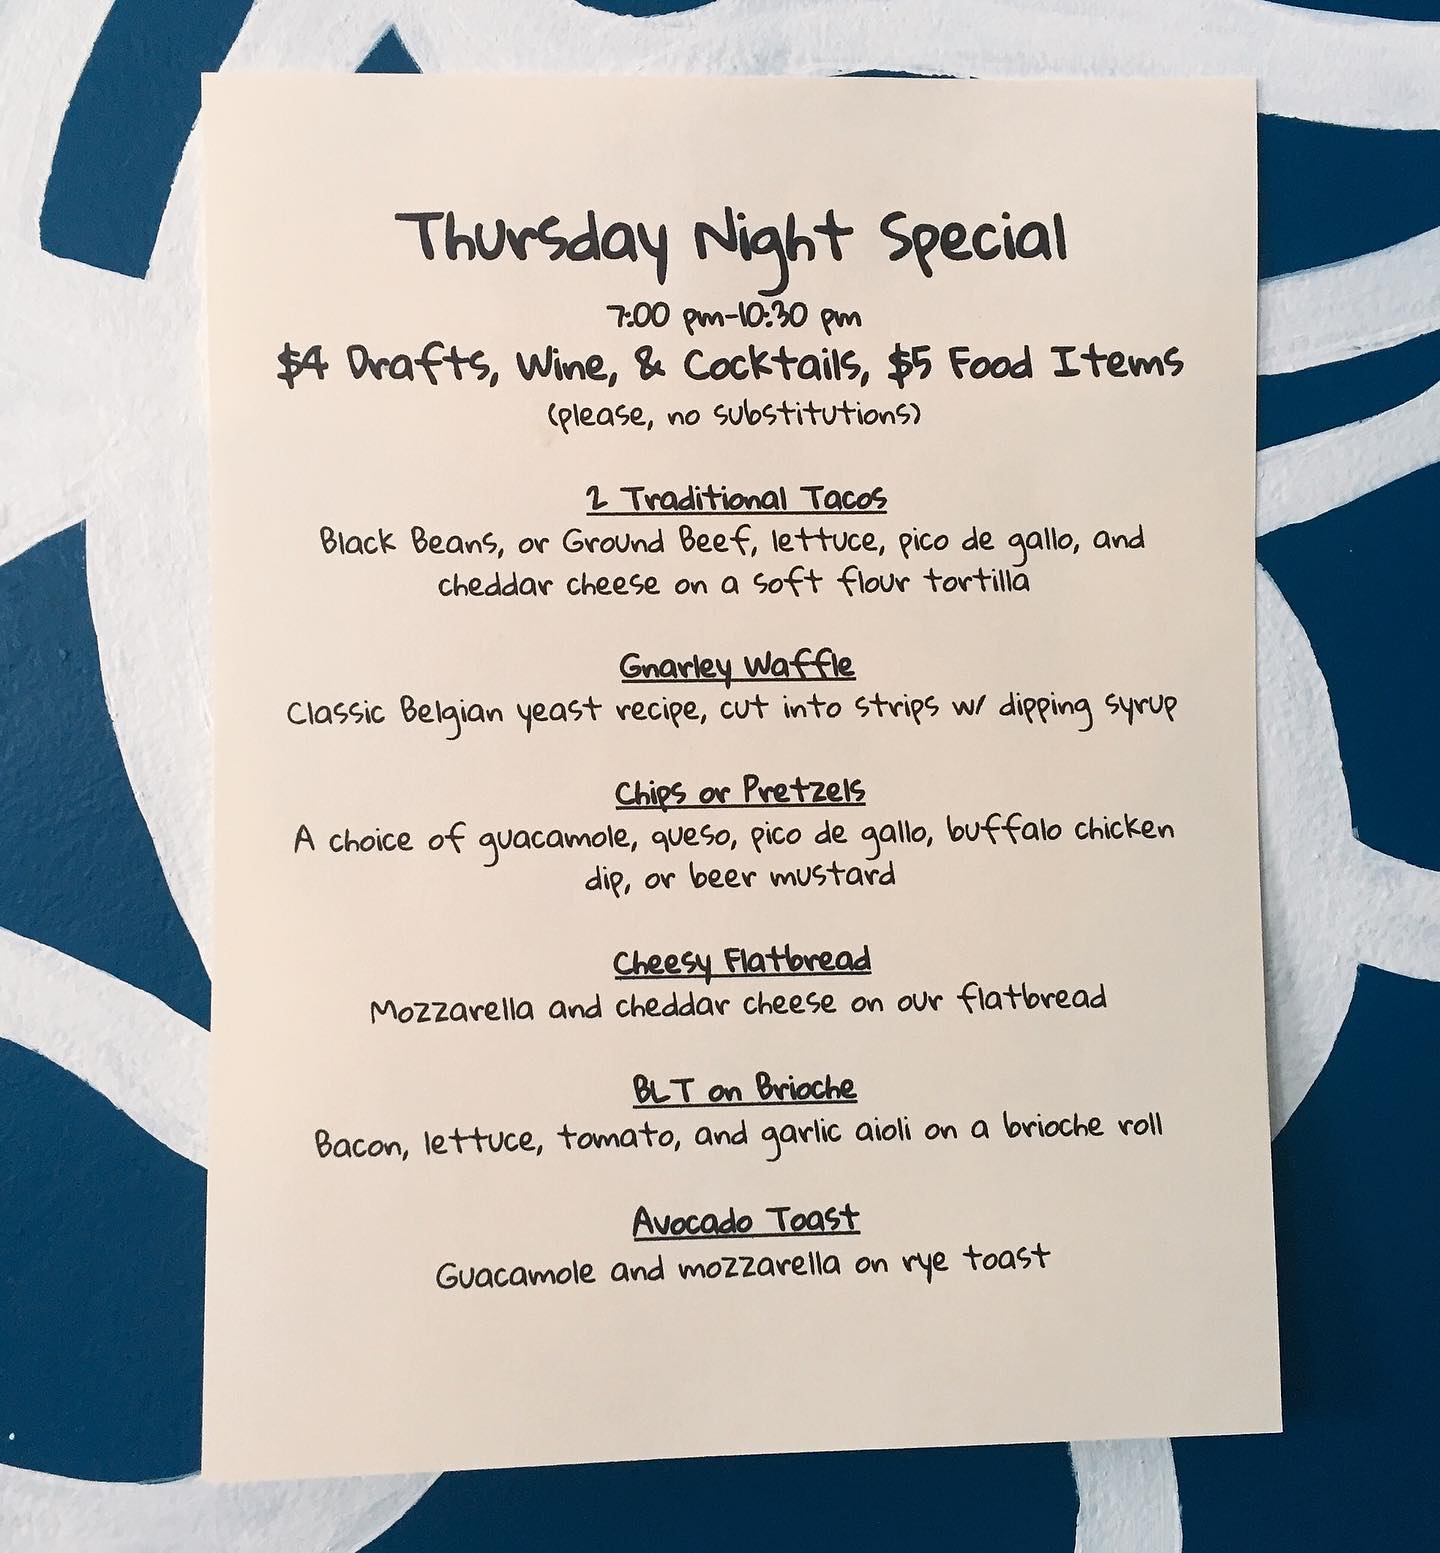 Thursday Night Special
7:00 pm-10:30 pm
$4 Drafts, Wine, & Cocktails, $5 Food Items
(please, no substitutions)
2 Traditional Tacos
Black Beans, or Ground Beef, lettuce, pico de gallo, and
cheddar cheese on a soft flour tortilla
Gnarley Waffle
Classic Belgian yeast recipe, cut into strips w/ dipping syrup
Chips or Pretzels
A choice of guacamole, queso, pico de gallo, buffalo chicken
dip, or beer mustard
Cheesy Flatbread
Mozzarella and cheddar cheese on our flatbread
BLT on Brioche
Bacon, lettuce, tomato, and garlic aioli on a brioche roll
Avocado Toast
Guacamole and mozzarella on rye toast